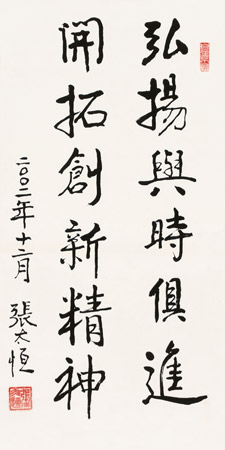 弘揚與時俱進
開拓創新精神
二〇〇二年十二月 張大恒